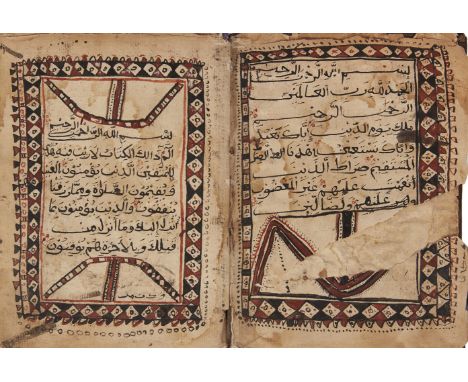 بسم الله الرحمن الرحيم
الحمد لله رب العالمين
الرحمن الرحيم
ملك يوم الدين اياك نعبد
واياك نستعين اهدنا الصراط
المستقيم صراط الذين
انعمت عليهم غير المغضوب
عليهم ولا الضالين
بسم الله الرحمن الرحيم
الم ذلك الكتاب لا ريب فيه هدى
للمتقين الذين يؤمنون
ويقيمون الصلوة ومما
ينفقون والذين يؤمنون بما
انزل اليك وما انزل من
قبلك وبالاخرة هم يوقنون